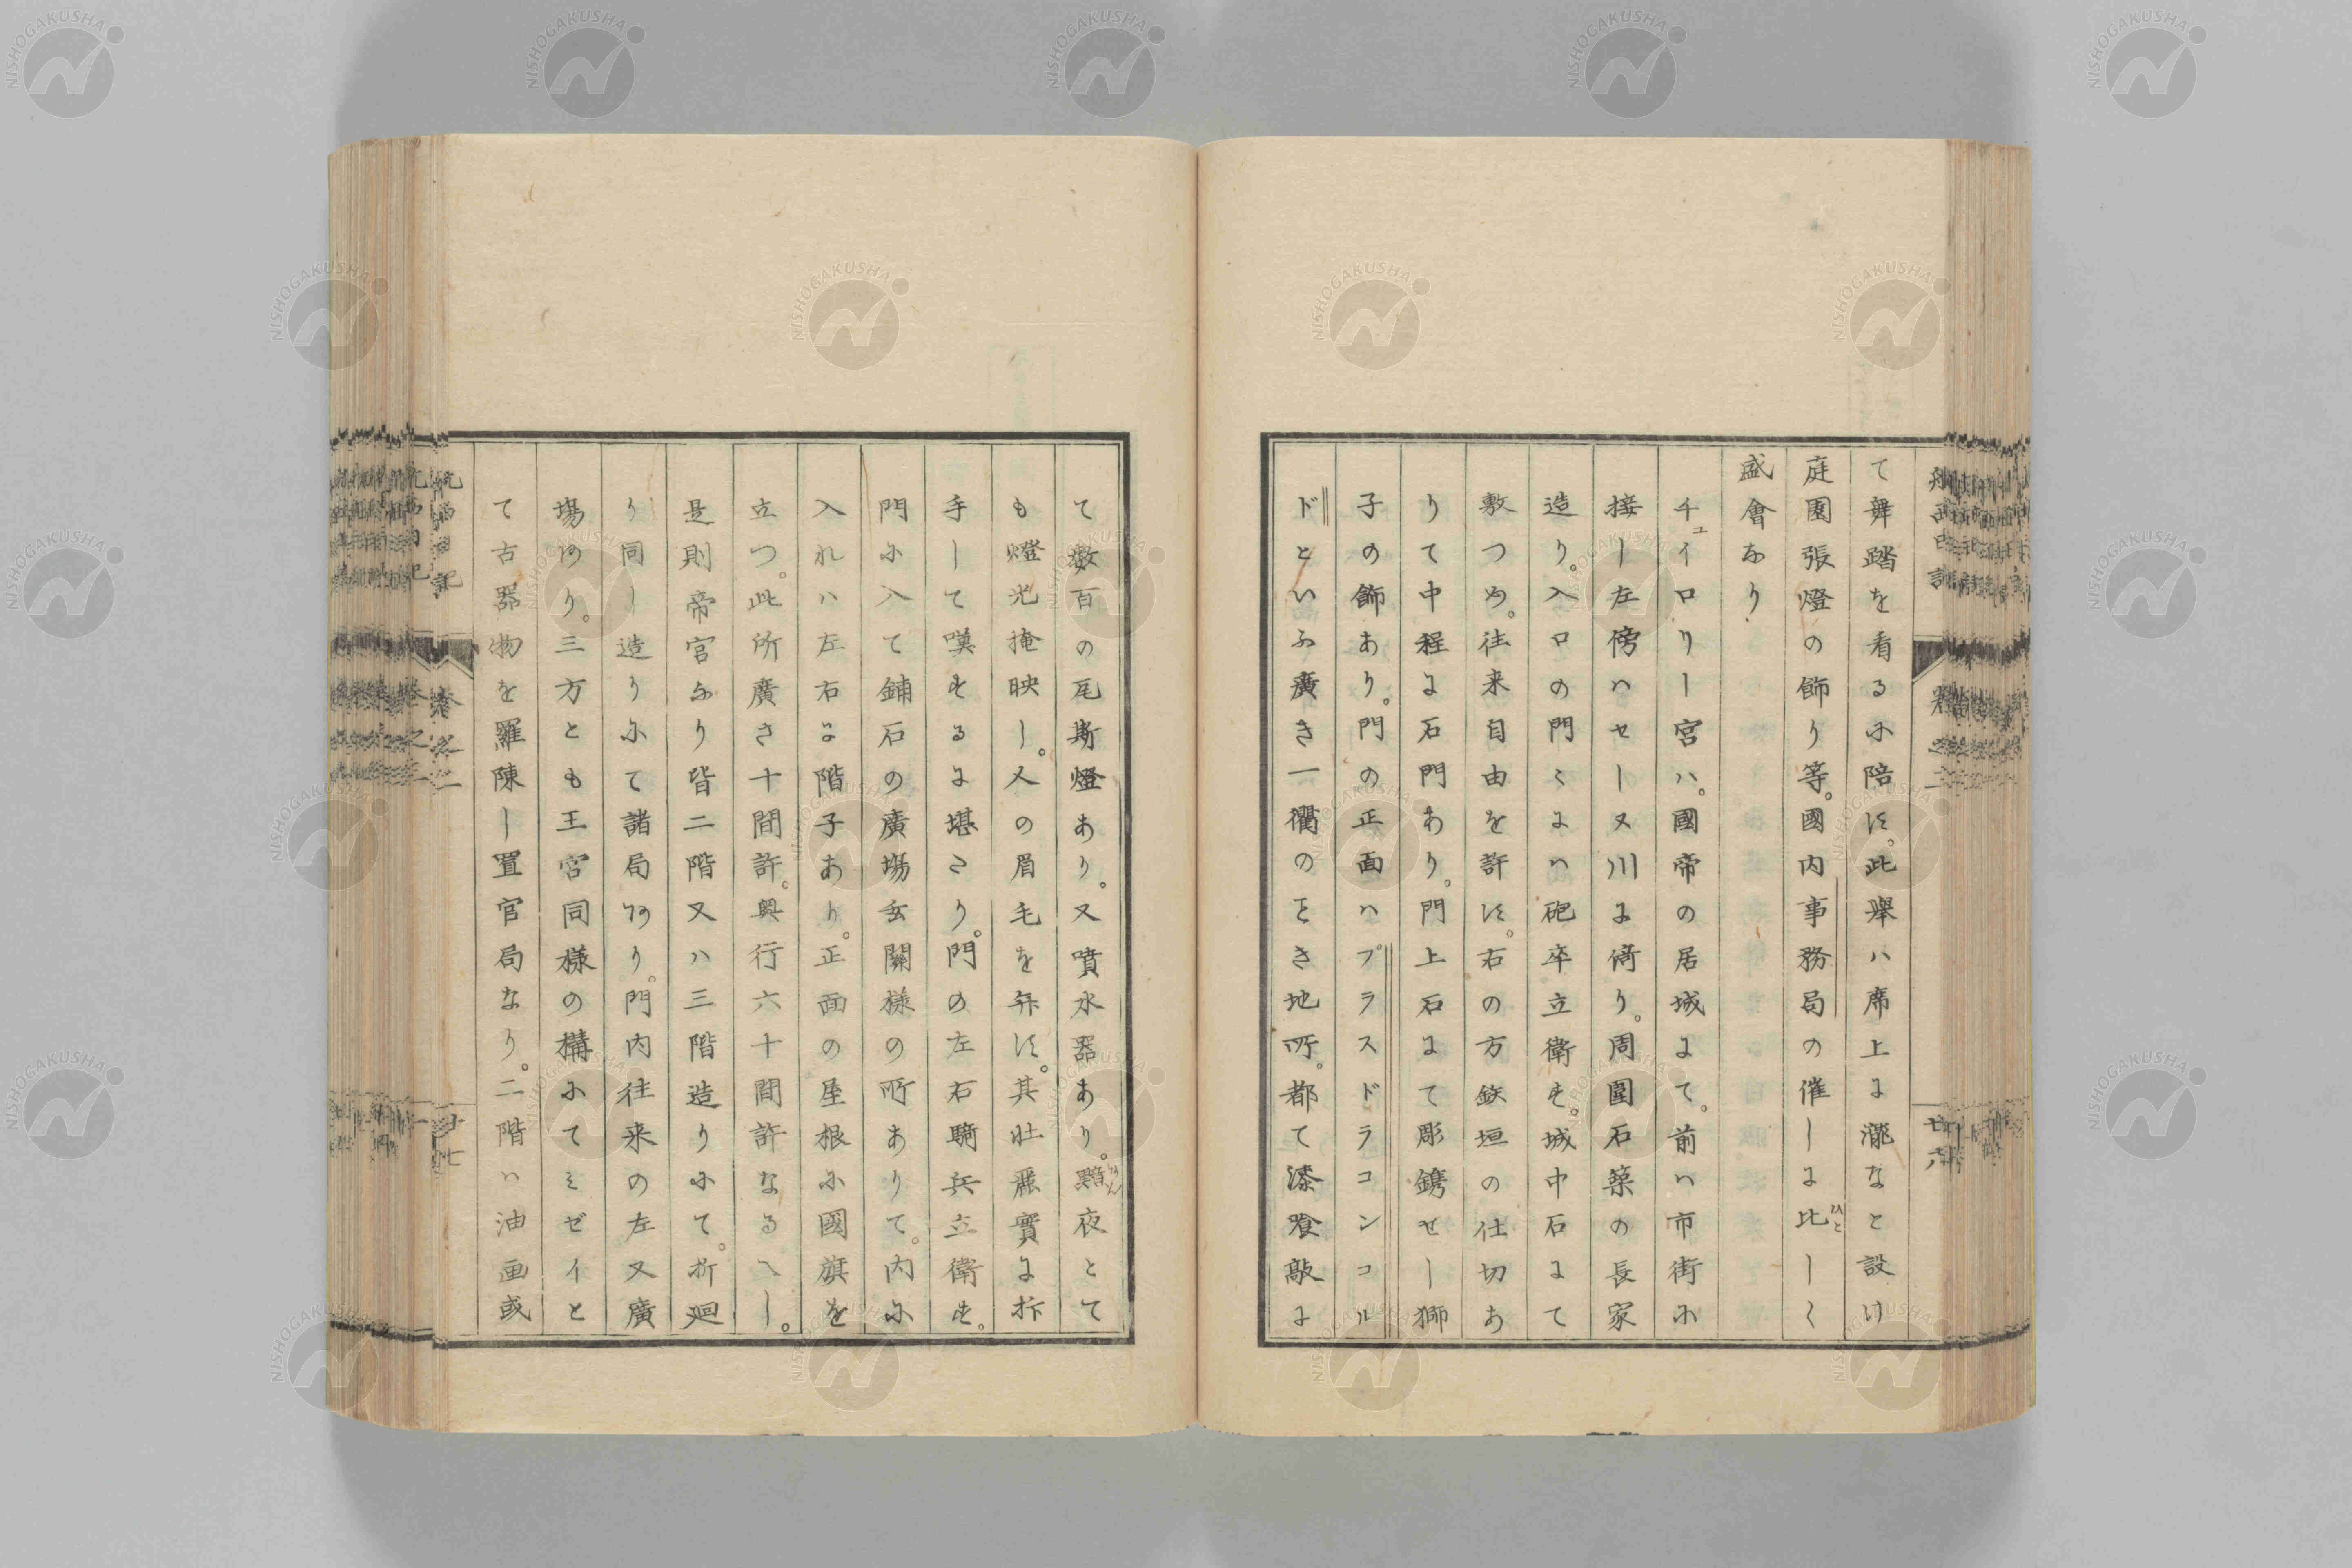 て舞踏を看るに陪す。此舉ハ席上に瀧なと設け
庭園張燈の飾り等。國内事務局の催しに比しく
ひと
盛會なり
チュイロリー宮ハ。國帝の居城にて。前ハ市街に
接し左傍ハセーヌ川に倚り。周圍石築の長家
造り。入口の門〻にハ砲卒立衛す。城中石にて
敷つめ。往来自由を許す。右の方鉄垣の仕切あ
りて中程に石門あり。門上石にて彫鐫せし獅
子の飾あり。門の正面ハプラスドラコンコル
ドといふ廣き一衢のごとき地所。都て漆喰敲に
て数百の瓦斯燈あり。又噴水器あり。黯夜とて
も燈光掩映し。人の眉毛を弁す。其壮麗實に抃
手して嘆するに堪さり。門の左右騎兵立衛す。
門に入て鋪石の廣場玄關様の所ありて。内に
入れハ左右に階子あり。正面の屋根に國旗を
立つ。此所廣さ十間許。奥行六十間許なるへし。
是則帝宮なり皆二階又ハ三階造りにて。折廻
り同し造りにて諸局あり。門内往来の左又廣
場あり。三方とも王宮同様の構にてミゼイと
て古器物を羅陳し置官局なり。二階ハ油画或
航西日記
卷之二
廿六
NISHOGAKUSHA